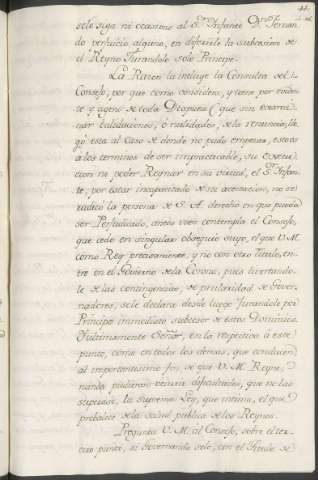 44.
se le siga ni ocasione al S.r Infante D.n Fernan
do perjuicio alguno, en diferirle la subcesion de
el Reyno Jurandole solo Principe.
La Razon la incluye la Consulta del
Consejo, por que como considera, y tiene por evidente
y ageno de toda Disputa (que sin exami
nar validaciones, ó nulidades, de la renuncia, lle
gó esta al Caso de donde no pudo empezar, estoes
a los terminos de ser impracticable, su execu
cion ni poder Reynar en su virtud, el S.r Infan
te, por estar incapacitado de su aceptacion, no se
radicó la persona de S. A. derecho en que pueda
ser Perjudicado, antes bien contempla el Consejo,
que cede en singular obsequio suyo, el que V. M.
como Rey precisamente, y no con otro titulo, en
tre en el Govierno de la Corona, pues livertando
le de las contingencias, de pluralidad de Gover
nadores, se le declara desde luego Jurandole por
Principe immediato subcesor de estos Dominios.
Ultimamente Señor, en la respectiva á este
punto, como en todos los demas, que conducen
al importantisimo fin de que V. M. Reyne,
quando pudieran venir dificultades, que no las
superase, la suprema Ley, que intima, el que
prebalece de la salud publica de los Reynos.
Pregunta V. M. al Consejo, sobre el ter
cero punto, si Governando solo, con el titulo de